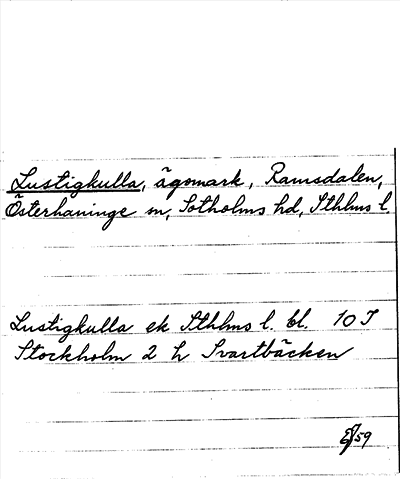 Lustigkulla, ägomark, Ramsdalen,
Österhaninge sn, Sotholms hd, Sthlms l.
Lustigkulla ek Sthlms l. bl. 10 I
Stockholm 2 h Svartbäcken
59